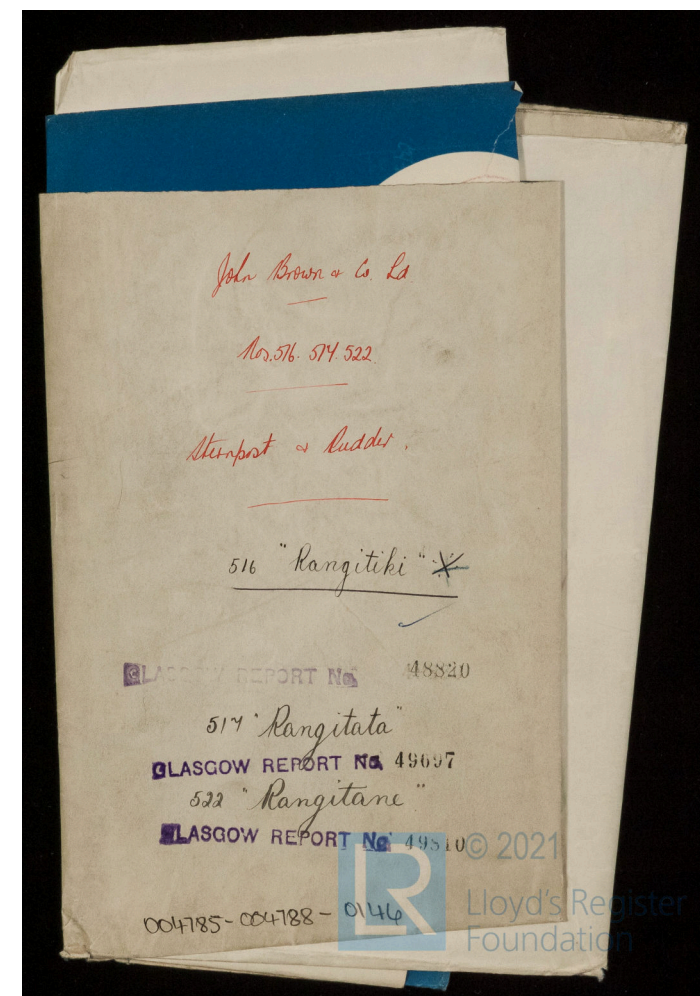 John Brown & Co. Ld.
Nos. 516. 517. 522.
Sternpost & Rudder.
516 "Rangitiki"
GLASGOW REPORT No. 48820
517 "Rangitata"
GLASGOW REPORT No. 49697
522 "Rangitane"
GLASGOW REPORT No. 49810
004785-004788-0146
LR
© 2021
Lloyd's Register
Foundation